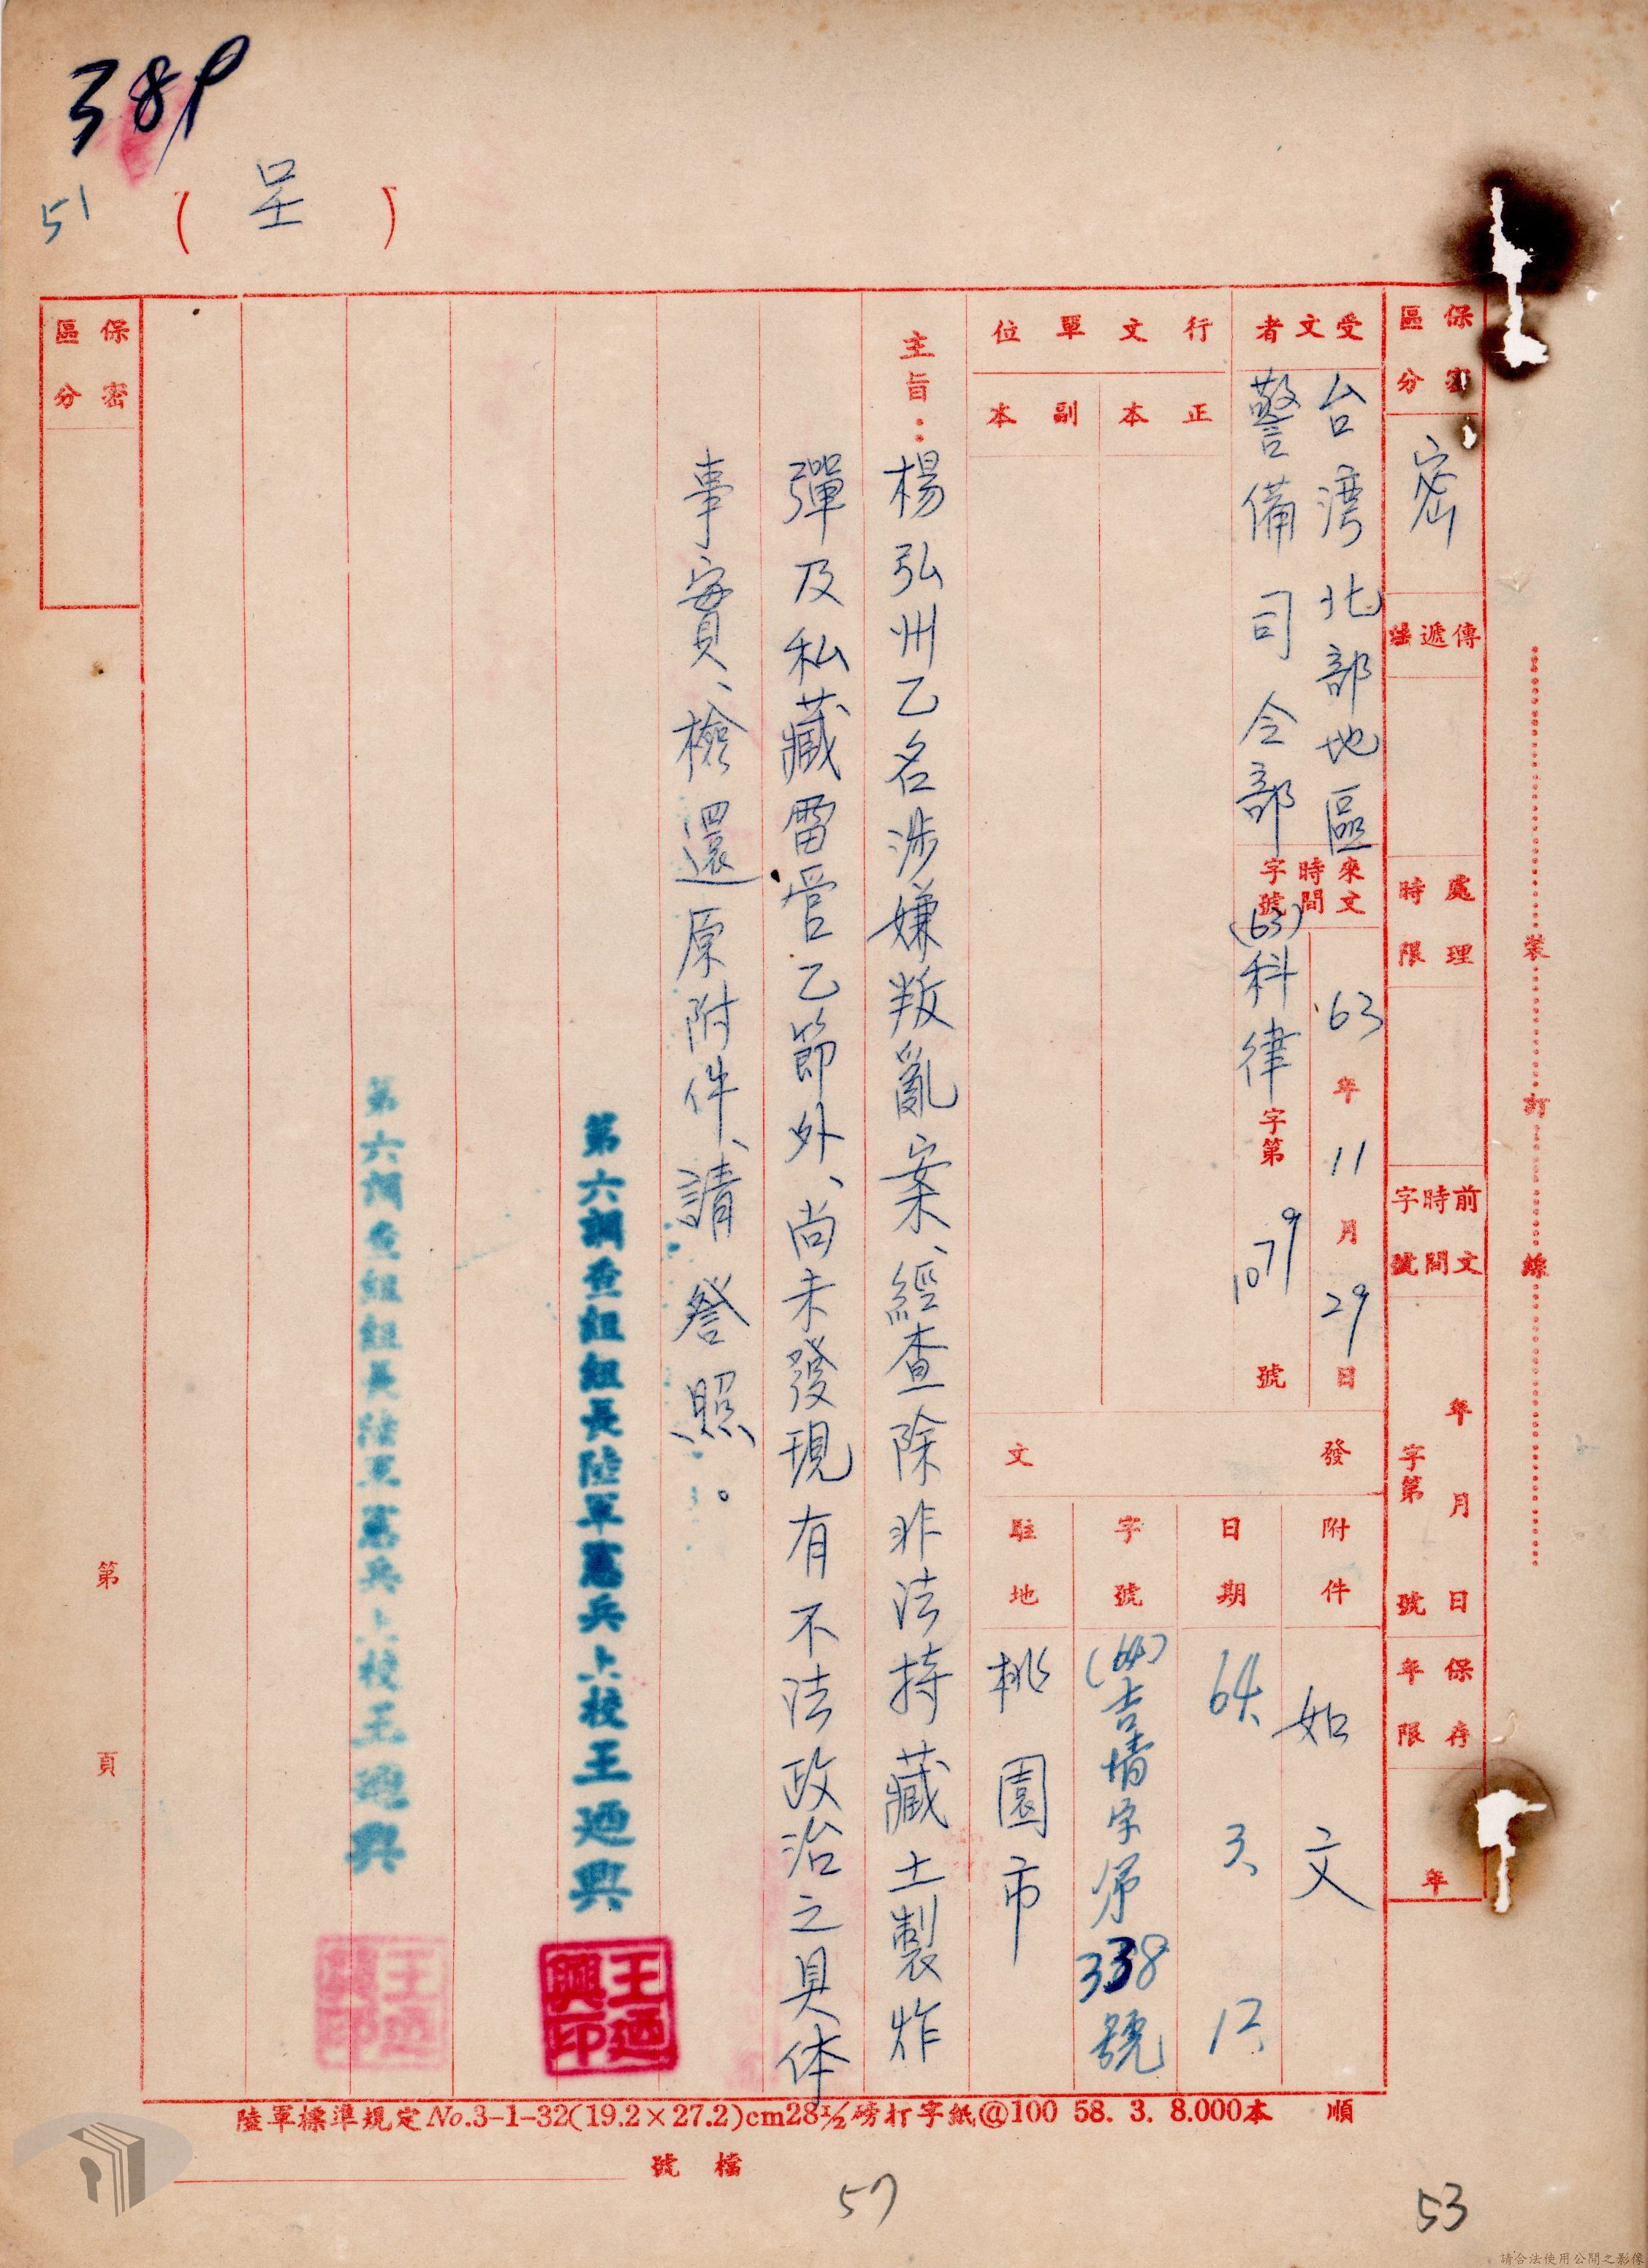 389
51
（呈）
保密區分
密
傳遞
處理時限
前文時間字號
年月日
字第號
保存年限
年
受文者
台灣北部地區
警備司令部
來文時間字號
63年11月29日
(63)科律字第1079號
行文單位
正本
副本
發文
附件
如文
日期
64、3、12、
字號
(64)吉情字第338號
駐地
桃園市
主旨：楊弘州乙名涉嫌叛亂案、經查除非法持藏土製炸
彈及私藏雷管乙節外、尚未發現有不法政治之具体
事實、檢還原附件、請詧照。
第六調查組組長陸軍憲兵上校王迺興
王迺興印
第六調查組組長陸軍憲兵上校王迺興
王迺興印
保密區分
第頁
裝訂線
陸軍標準規定No.3-1-32(19.2×27.2)cm28½磅打字紙@100 58. 3. 8.000本 順
檔號
57
53
請合法使用公開之影像